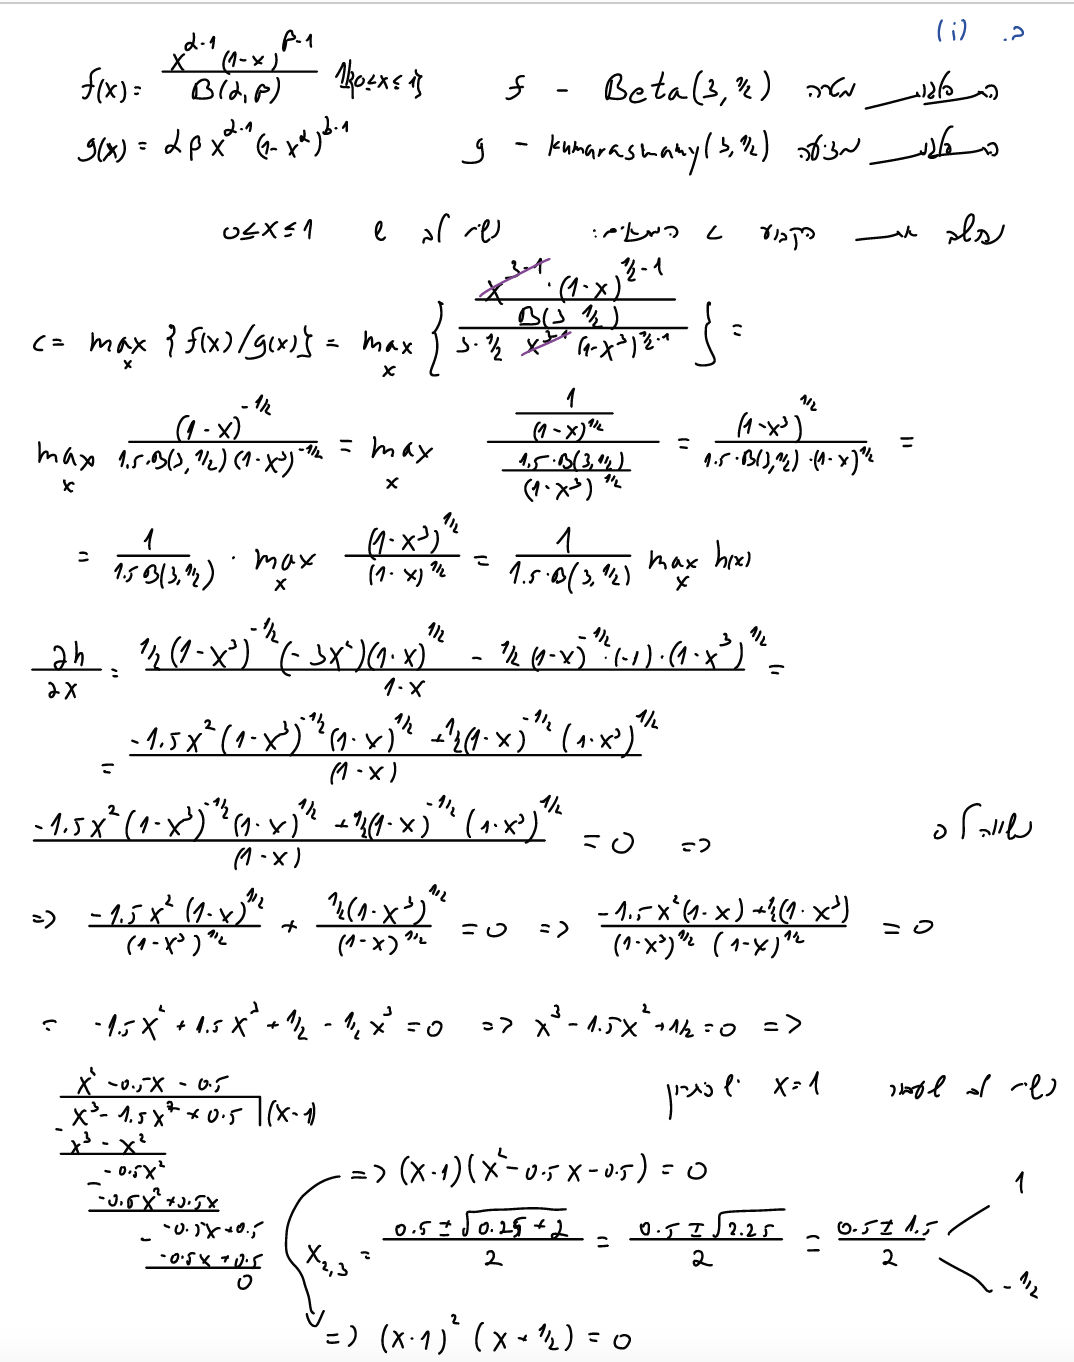 ב. (i)
f(x) = \frac{x^{α-1}(1-x)^{β-1}}{B(α,β)} 1{0≤x≤1} f - Beta(3, 1/2) מטרה התפלגות
g(x) = αβx^{α-1}(1-x^α)^{β-1} g - kumaraswamy(3, 1/2) התפלגות
נמצא את הקבוע c נשים לב ש 0≤x≤1
c = max_x {f(x)/g(x)} = max_x { \frac{\frac{x^{3-1}·(1-x)^{1/2-1}}{B(3, 1/2)}}{3·1/2 x^{3-1}(1-x^3)^{1/2-1}} } =
max_x \frac{(1-x)^{-1/2}}{1.5·B(3,1/2)(1-x^3)^{-1/2}} = max_x \frac{\frac{1}{(1-x)^{1/2}}}{\frac{1.5·B(3,1/2)}{(1-x^3)^{1/2}}} = \frac{(1-x^3)^{1/2}}{1.5·B(3,1/2)·(1-x)^{1/2}} =
= \frac{1}{1.5B(3,1/2)} · max_x \frac{(1-x^3)^{1/2}}{(1-x)^{1/2}} = \frac{1}{1.5·B(3,1/2)} max_x h(x)
\frac{∂h}{∂x} = \frac{1/2(1-x^3)^{-1/2}(-3x^2)(1-x)^{1/2} - 1/2(1-x)^{-1/2}·(-1)·(1-x^3)^{1/2}}{1-x} =
= \frac{-1.5x^2(1-x^3)^{-1/2}(1-x)^{1/2} + 1/2(1-x)^{-1/2}(1-x^3)^{1/2}}{(1-x)}
\frac{-1.5x^2(1-x^3)^{-1/2}(1-x)^{1/2} + 1/2(1-x)^{-1/2}(1-x^3)^{1/2}}{(1-x)} = 0 => נשווה ל 0
=> \frac{-1.5x^2(1-x)^{1/2}}{(1-x^3)^{1/2}} + \frac{1/2(1-x^3)^{1/2}}{(1-x)^{1/2}} = 0 => \frac{-1.5x^2(1-x)+1/2(1-x^3)}{(1-x^3)^{1/2}(1-x)^{1/2}} = 0
= -1.5x^2 + 1.5x^3 + 1/2 - 1/2x^3 = 0 => x^3 - 1.5x^2 + 1/2 = 0 =>
נשים לב x=1
x^2 - 0.5x - 0.5
x^3 - 1.5x^2 + 0.5 | (x-1)
- x^3 - x^2
- 0.5x^2
- -0.5x^2 + 0.5x
- -0.5x + 0.5
-0.5x + 0.5
0
=> (x-1)(x^2 - 0.5x - 0.5) = 0
x_{2,3} = \frac{0.5 ± √{0.25+2}}{2} = \frac{0.5 ± √{2.25}}{2} = \frac{0.5 ± 1.5}{2} 1
-1/2
=> (x-1)^2 (x + 1/2) = 0